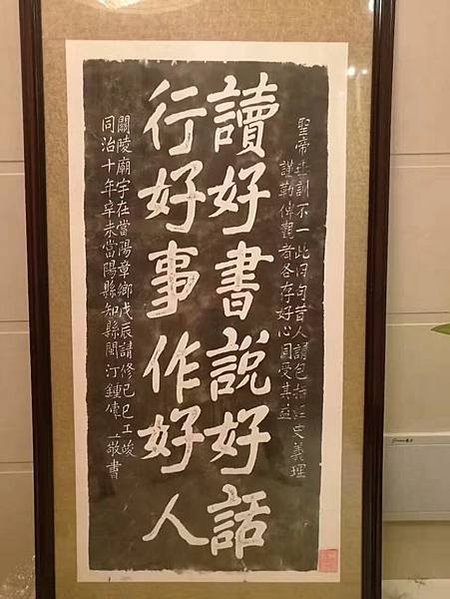 聖帝訓不一此四句昔人謂包括經史義理
謹勒俾觀者各存好心受其益
讀好書說好話
行好事作好人
關陵廟宇在當陽章鄉戊辰請修己巳工竣
同治十年辛未當陽縣知縣閩汀鍾傳一敬書